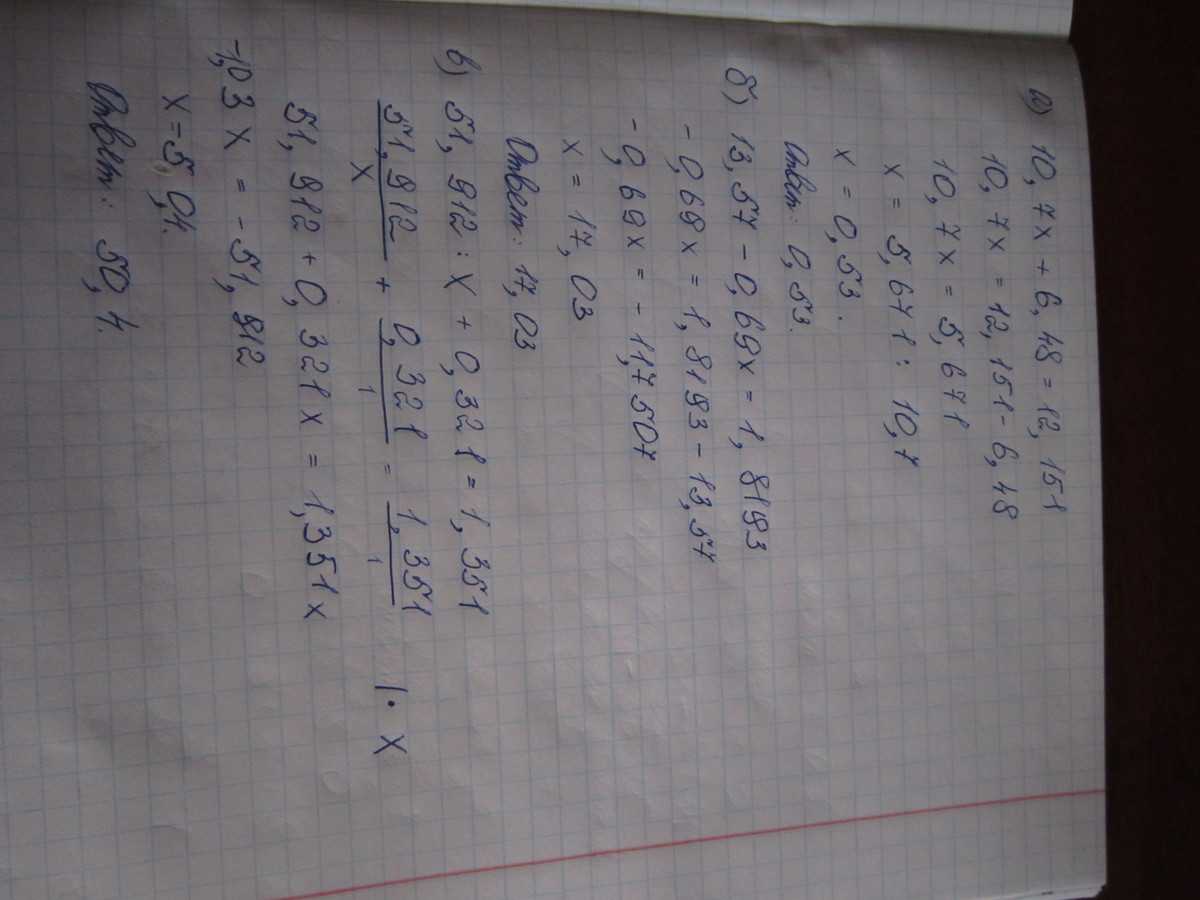 а) 10,7x + 6,48 = 12,151
10,7x = 12,151 - 6,48
10,7x = 5,671
x = 5,671 : 10,7
x = 0,53.
Ответ: 0,53.
б) 13,57 - 0,69x = 1,8193
- 0,69x = 1,8193 - 13,57
- 0,69x = - 11,7507
x = 17,03
Ответ: 17,03
в) 51,912 : x + 0,321 = 1,351
51,912/x + 0,321/1 = 1,351/1 | · x
51,912 + 0,321x = 1,351x
-1,03x = - 51,912
x = 50,4.
Ответ: 50,4.